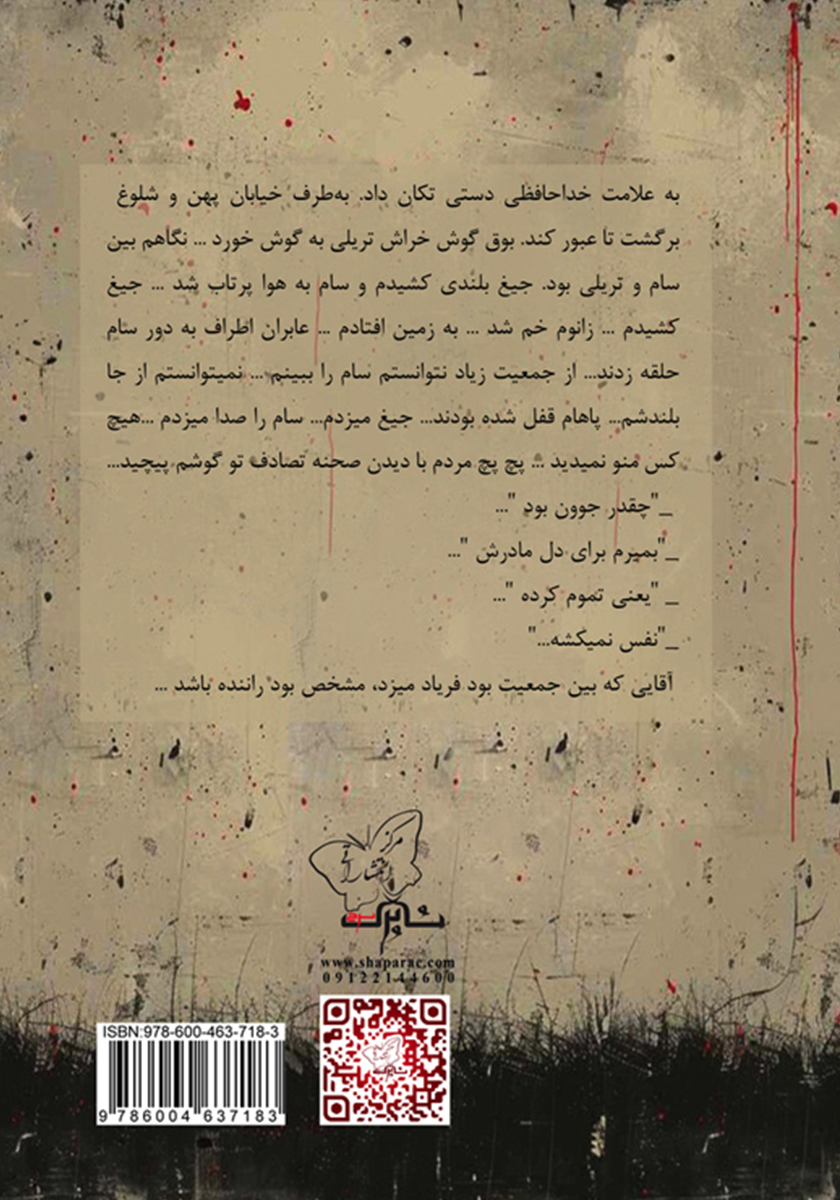 به علامت خداحافظی دستی تکان داد. به‌طرف خیابان پهن و شلوغ
برگشت تا عبور کند. بوق گوش خراش تریلی به گوش خورد ... نگاهم بین
سام و تریلی بود. جیغ بلندی کشیدم و سام به هوا پرتاب شد ... جیغ
کشیدم ... زانوم خم شد ... به زمین افتادم ... عابران اطراف به دور سام
حلقه زدند... از جمعیت زیاد نتوانستم سام را ببینم ... نمیتوانستم از جا
بلندشم... پاهام قفل شده بودند... جیغ میزدم... سام را صدا میزدم ...هیچ
کس منو نمیدید ... پچ پچ مردم با دیدن صحنه تصادف تو گوشم پیچید...
_"چقدر جوون بود "...
_"بمیرم برای دل مادرش "...
_ "یعنی تموم کرده "...
_"نفس نمیکشه..."
آقایی که بین جمعیت بود فریاد میزد، مشخص بود راننده باشد ...
مرکز
انتشاراتی
شاپرک سرخ
www.shaparac.com
09122144600
ISBN:978-600-463-718-3
9 786004 637183